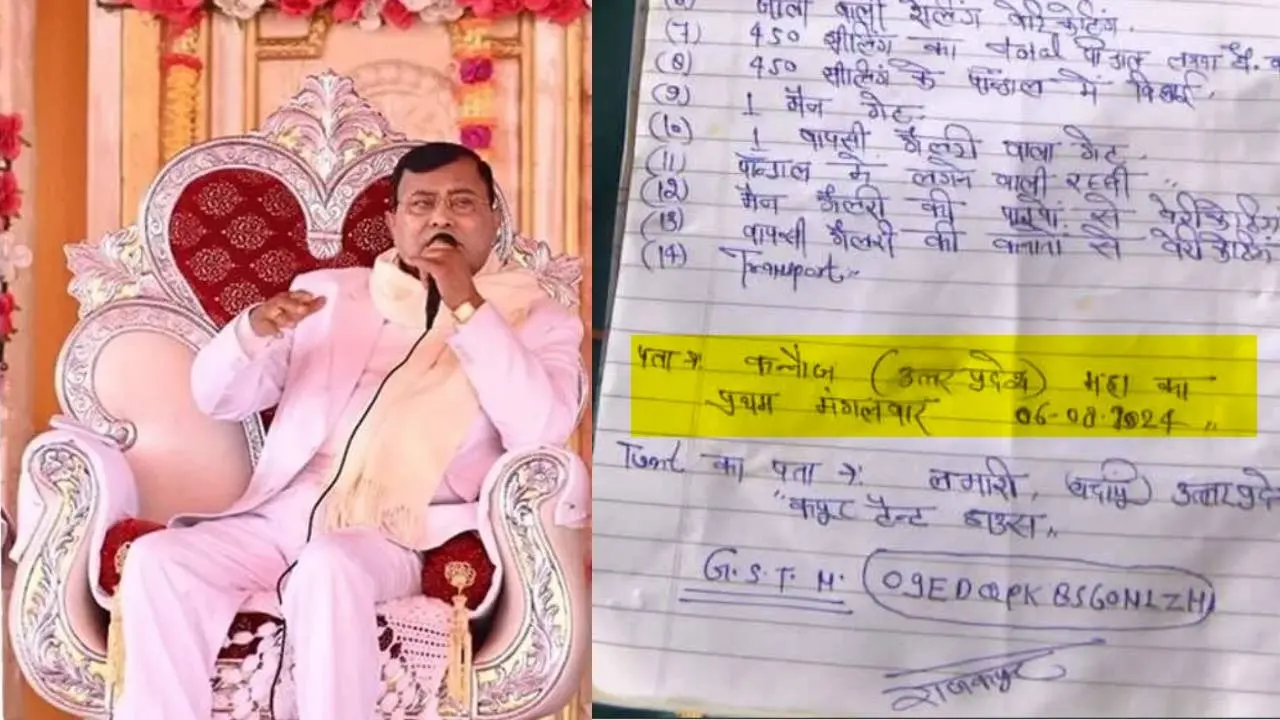 जाली वाली रेलिंग वेरिकेटिंग.
(7) 450 सीलिंग का पांडाल
(8) 450 सीलिंग के पॉन्डाल में
(9) 1 मैन गेट.
(10) 1 वापसी गैलरी वाला गेट.
(11) पॉन्डाल में लगने वाली रस्सी "
(12) मैन गैलरी की पाइपों से वेरीकेटिंग
(13) वापसी गैलरी की कनातो से वेरीकेटिंग
(14) Transport "
पता → कन्नौज (उत्तर प्रदेश) का
प्रथम मंगलवार 06-08-2024 "
Tent का पता → उत्तर प्रदे
"कपूर टैन्ट हाउस "
G.S.T.N.
राजकपूर